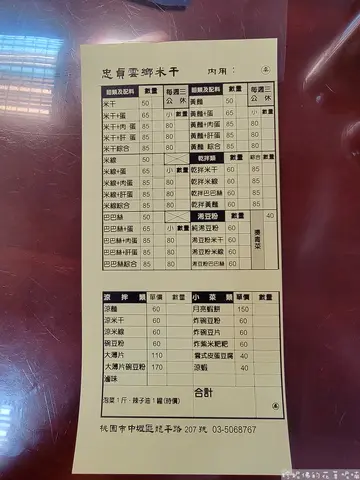 忠貞雲鄉米干 內用：
麵類及配料 數量 每週三公休
米干 50
米干+蛋 65 小 數量
米干+肉 蛋 85 80
米干+肝 蛋 85 80
米干 綜合 85 80
米線 50
米線+蛋 65 小 數量
米線+肉蛋 85 80
米線+肝蛋 85 80
米線綜合 85 80
巴巴絲 50
巴巴絲+蛋 65 小 數量
巴巴絲+肉蛋 85 80
巴巴絲+肝蛋 85 80
巴巴絲綜合 85 80
麵類及配料 數量 每週三公休
黃麵 50
黃麵+蛋 65 小 數量
黃麵+肉蛋 85 80
黃麵+肝蛋 85 80
黃麵 綜合 85 80
乾拌類 綜合 數量
乾拌米干 60 85
乾拌米線 60 85
乾拌巴巴絲 60 85
乾拌黃麵 60 85
湯豆粉 數量 40
純湯豆粉 60
湯豆粉米干 60
湯豆粉米線 60
湯豆粉巴巴絲 60
燙青菜
涼拌類 單價 數量
涼麵 60
涼米干 60
涼米線 60
碗豆粉 60
大薄片 110
大薄片碗豆粉 170
滷味
泡菜1斤、辣子油1罐(時價)
小菜類 單價 數量
月亮蝦餅 150
炸碗豆粉 60
炸碗豆片 60
炸紫米粑粑 60
雲式皮蛋豆腐 40
涼蝦 40
合計
桃園市中壢區龍平路207號 03-5068767